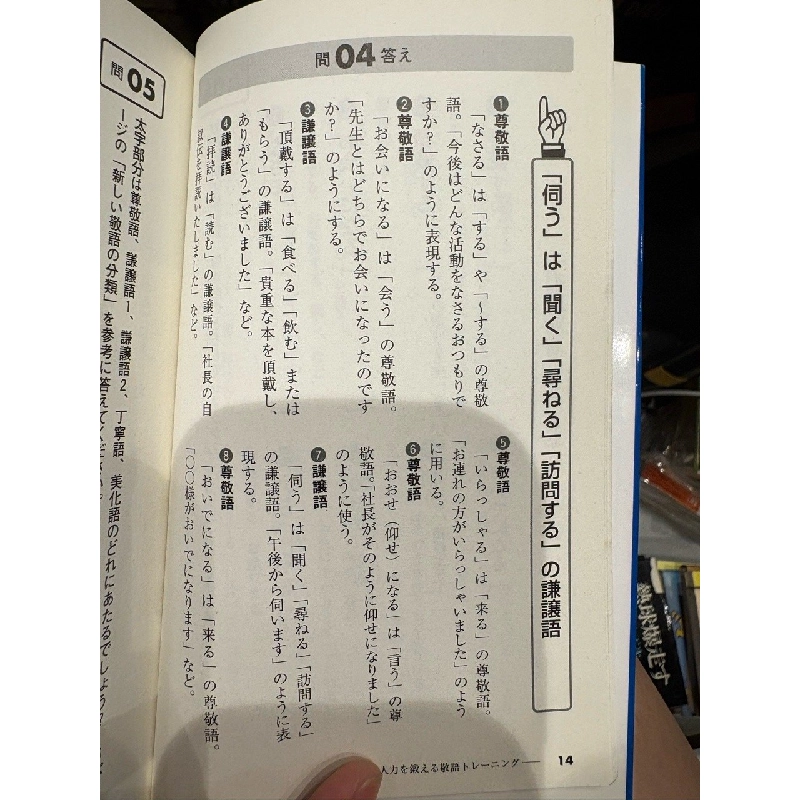 問04答え
「伺う」は「聞く」「尋ねる」「訪問する」の謙譲語
❶尊敬語
「なさる」は「する」や「～する」の尊敬
語。「今後はどんな活動をなさるおつもりで
すか?」のように表現する。
❷尊敬語
「お会いになる」は「会う」の尊敬語。
「先生とはどちらでお会いになったのです
か?」のようにする。
❸謙譲語
「頂戴する」は「食べる」「飲む」または
「もらう」の謙譲語。「貴重な本を頂戴し、
ありがとうございました」など。
❹謙譲語
「拝読」は「読む」の謙譲語。「社長の自
を拝読いたしました」など。
❺尊敬語
「いらっしゃる」は「来る」の尊敬語。
「お連れの方がいらっしゃいました」のよう
に用いる。
❻尊敬語
「おおせ(仰せ)になる」は「言う」の尊
敬語。「社長がそのように仰せになりました」
のように使う。
❼謙譲語
「伺う」は「聞く」「尋ねる」「訪問する」
の謙譲語。「午後から伺います」のように表
現する。
❽尊敬語
「おいでになる」は「来る」の尊敬語。
「○○様がおいでになります」など。
人力を鍛える敬語トレーニング
14
問05
太字部分は尊敬語、謙譲語1、謙譲語2、丁寧語、美化語のどれにあたるでしょう?
ージの「新しい敬語の分類」を参考に答えてください。